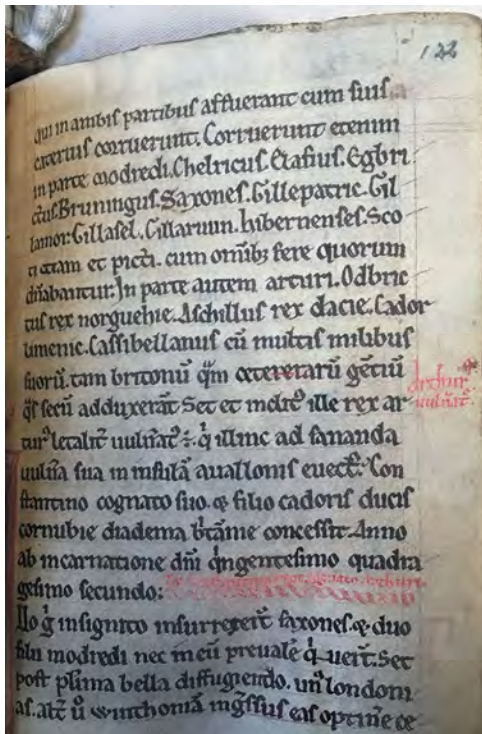 122
qui in ambis partibus affuerant cum suis
cateruis corruerunt. Corruerunt etenim
in parte modredi. Chelricus. Elafius. Egbri
ctus. Bruningus. Saxones. Gillepatric. Gil
lamor. Gillasel. Gillaruun. hibernenses. Sco
ti etiam et picti. cum omnibꝫ fere quorum
dn̄abantur. In parte autem arturi. Odbric
tus rex norguehie. Aschillus rex dacie. Cador
limenic. Cassibellanus cū multis milibus
suorū. tam britonū qᷓm ceterarū gētiū
qͣs secū adduxerat̄ Set et inclitꝰ ille rex ar
Arthur
uulnat᷑
turꝰ letalit᷑ uulnatꝰ ÷. qͥ illinc ad sananda
uuln̄a sua in insulā auallonis euectꝰ. Con
stantino cognato suo. ⁊ filio cadoris ducis
cornubie diadema b᷑tan̄ie concessit. Anno
ab incarnatione dn̄i qͥngentesimo quadra
gesimo secundo:
Ilo gͥ insignito insurrexer̄t saxones. ⁊ duo
filii modredi nec in eū preuale᷑ qͥuer̄t. Set
post pl᷑ima bella diffugiendo. unꝰ londoni
as. alt᷑ u̾o wintoniā ing᷑ssus eas optine᷑ ce